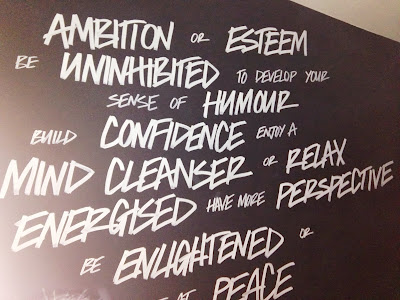 AMBITION OR ESTEEM
BE UNINHIBITED TO DEVELOP YOUR
SENSE OF HUMOUR
BUILD CONFIDENCE ENJOY A
MIND CLEANSER OR RELAX
ENERGISED HAVE MORE PERSPECTIVE
BE ENLIGHTENED OR
AT PEACE